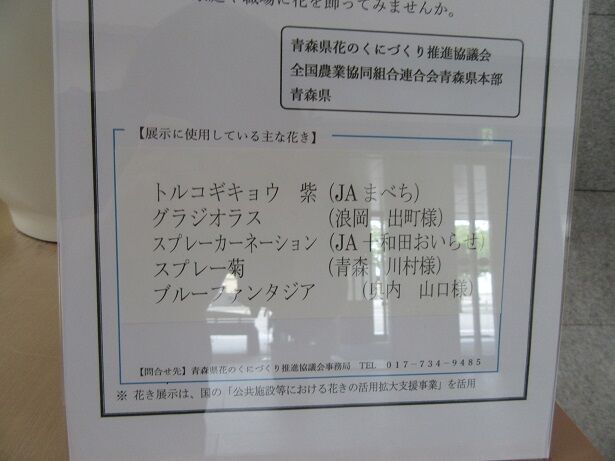 職場に花を飾ってみませんか。
青森県花のくにづくり推進協議会
全国農業協同組合連合会青森県本部
青森県
【展示に使用している主な花き】
トルコギキョウ 紫(JAまべち)
グラジオラス (浪岡 出町様)
スプレーカーネーション(JA十和田おいらせ)
スプレー菊 (青森 川村様)
ブルーファンタジア (県内 山口様)
【問合せ先】青森県花のくにづくり推進協議会事務局 TEL 017-734-9485
※ 花き展示は、国の「公共施設等における花きの活用拡大支援事業」を活用